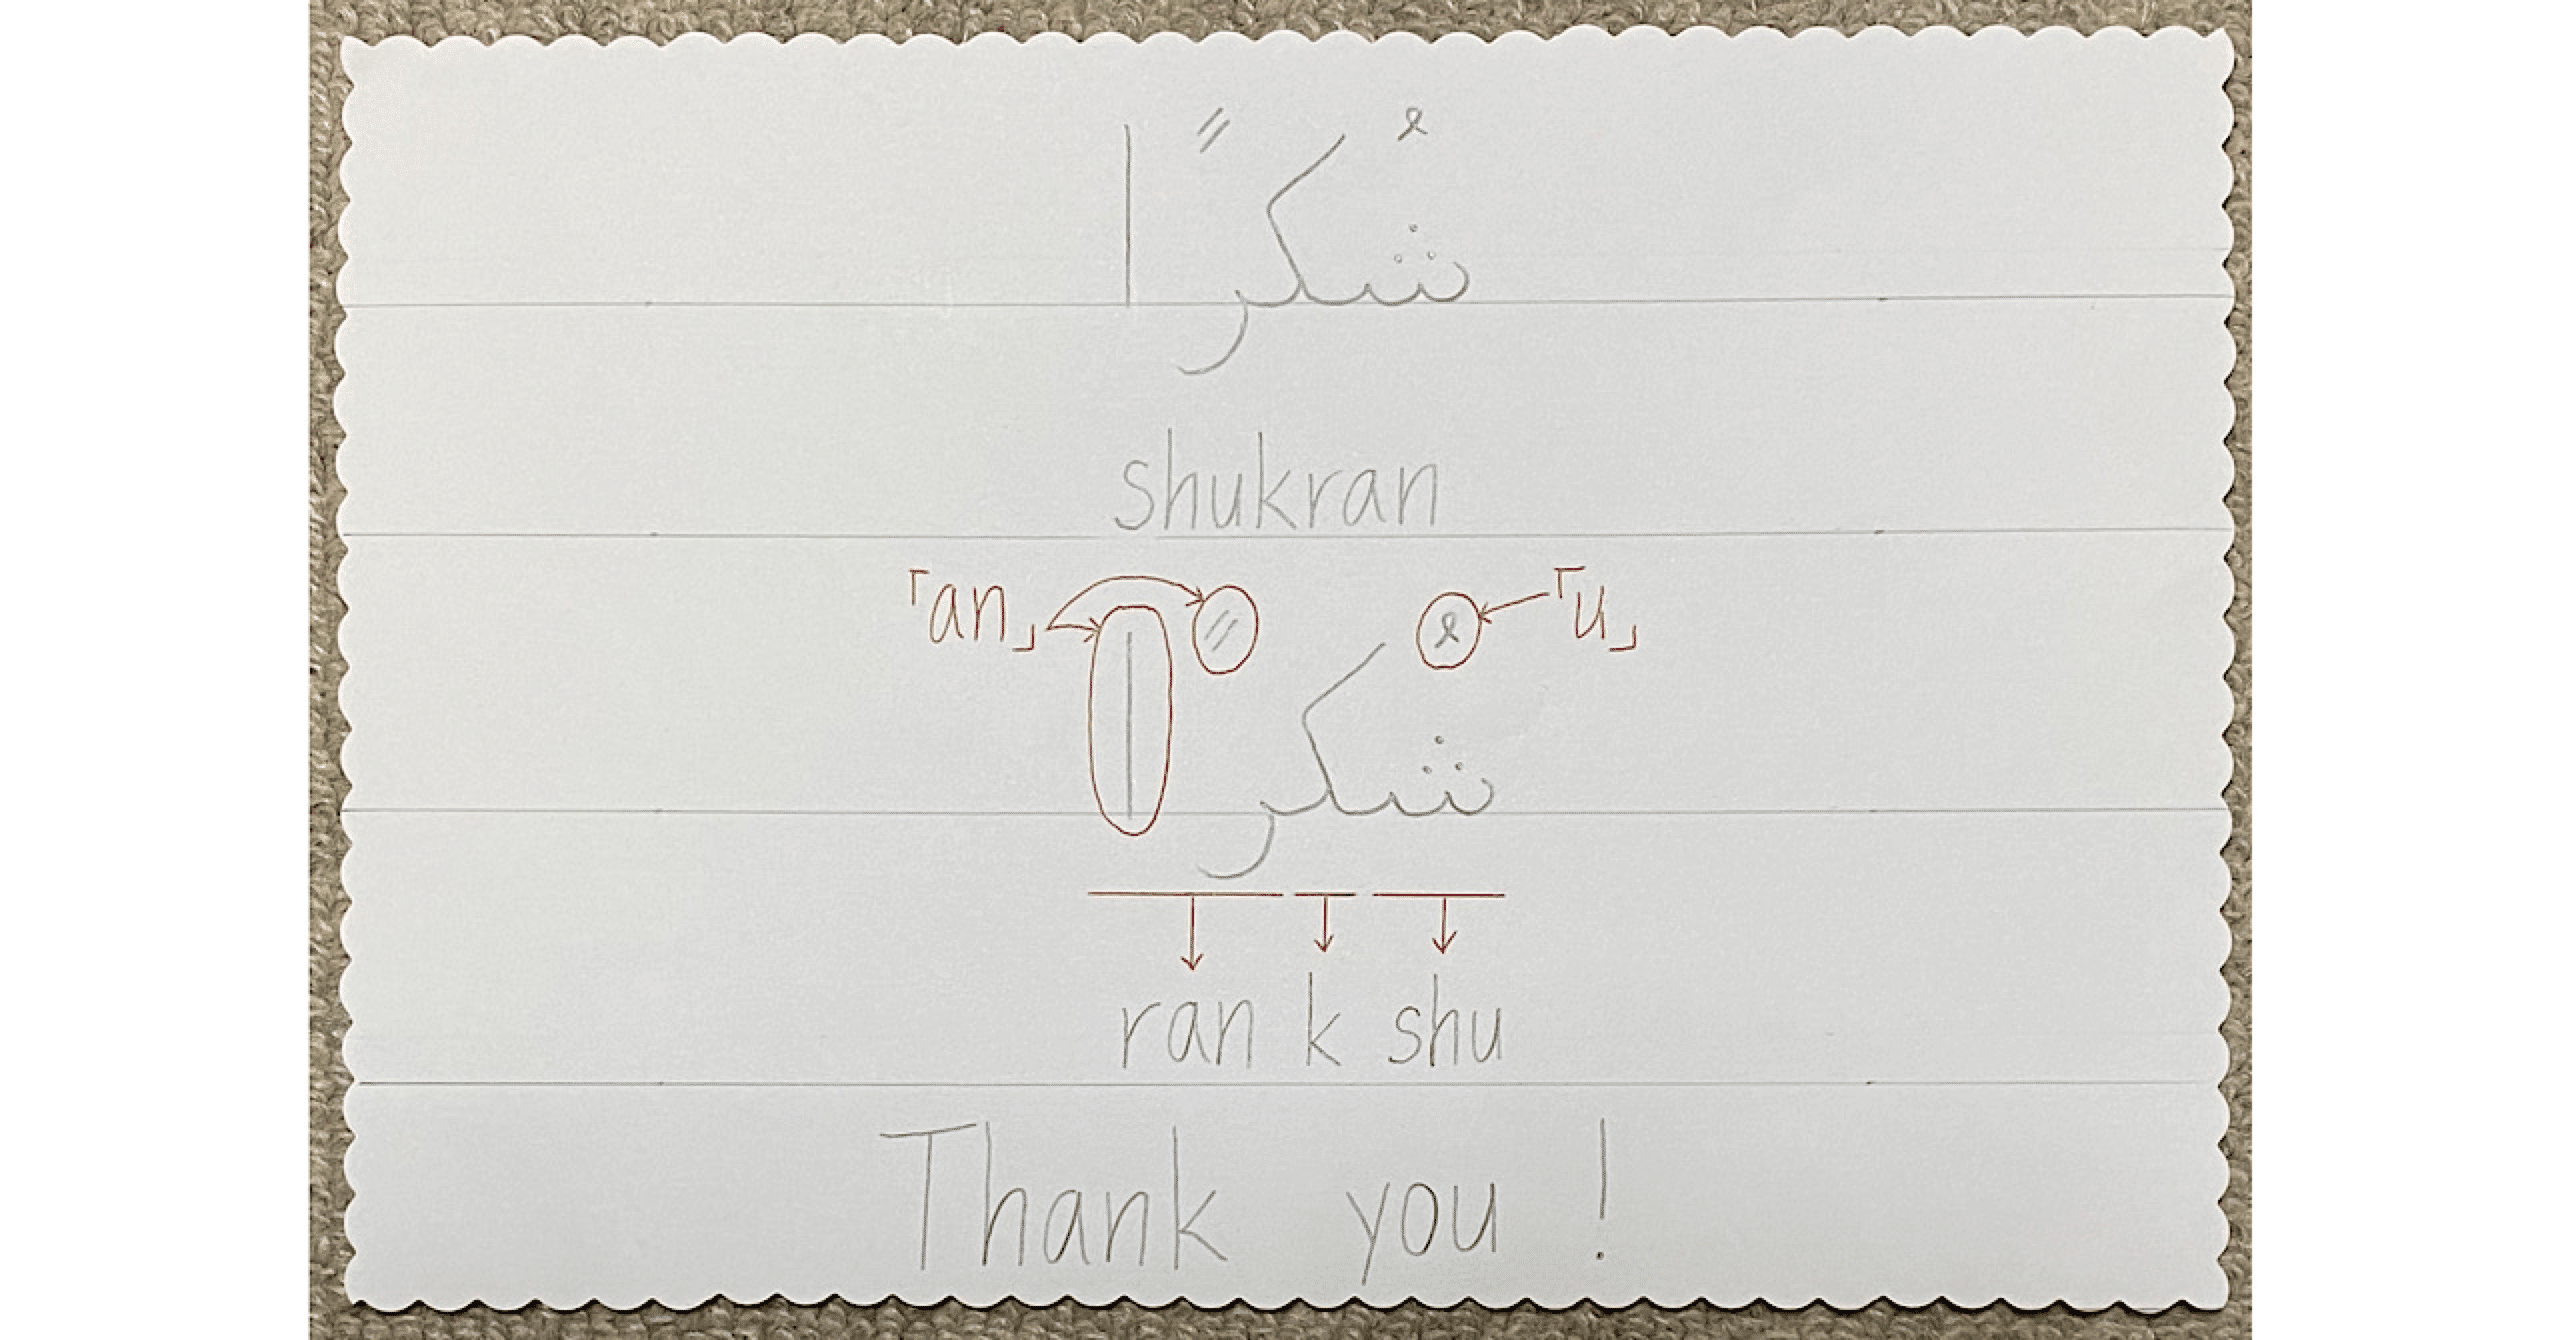 شُكرًا
shukran
「an」 「u」
شُكرًا
ran k shu
Thank you !